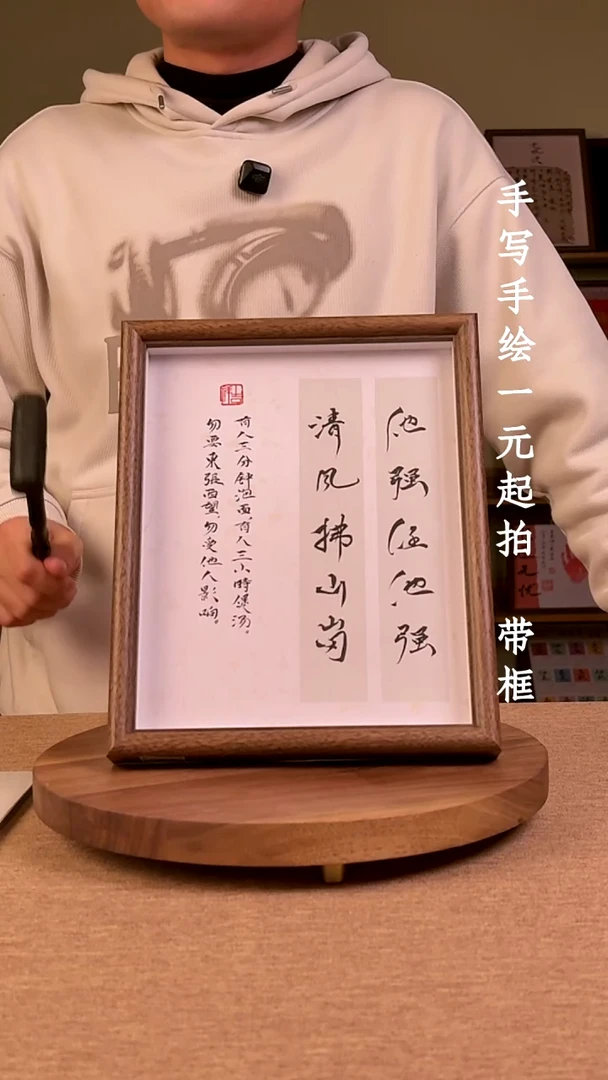 手写手绘一元起拍 带框
他强任他强
清风拂山岗
有人三分钟泡面，有人三小時煲汤。
勿要東張西望，勿受他人影响。